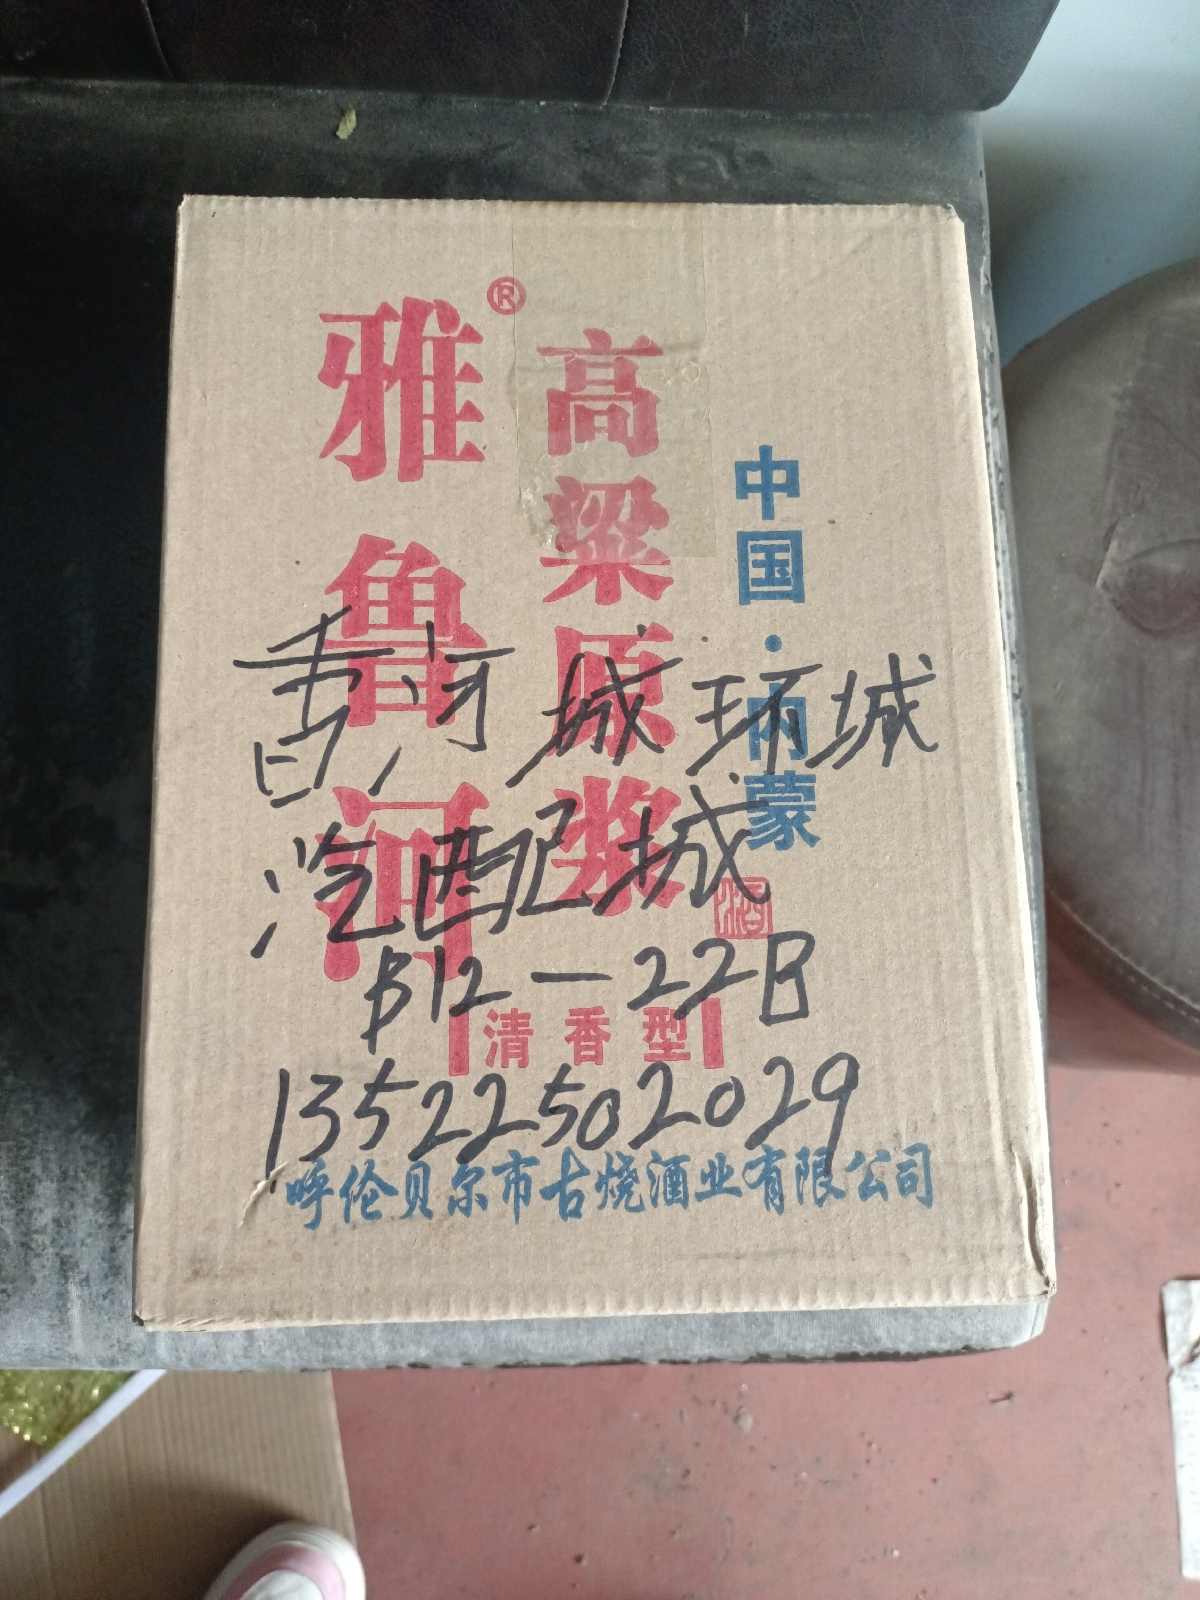 雅鲁河®
高粱原浆
中国·内蒙
酒
香河城环城
汽配城
B12-22B
13522502029
清香型
呼伦贝尔市古烧酒业有限公司